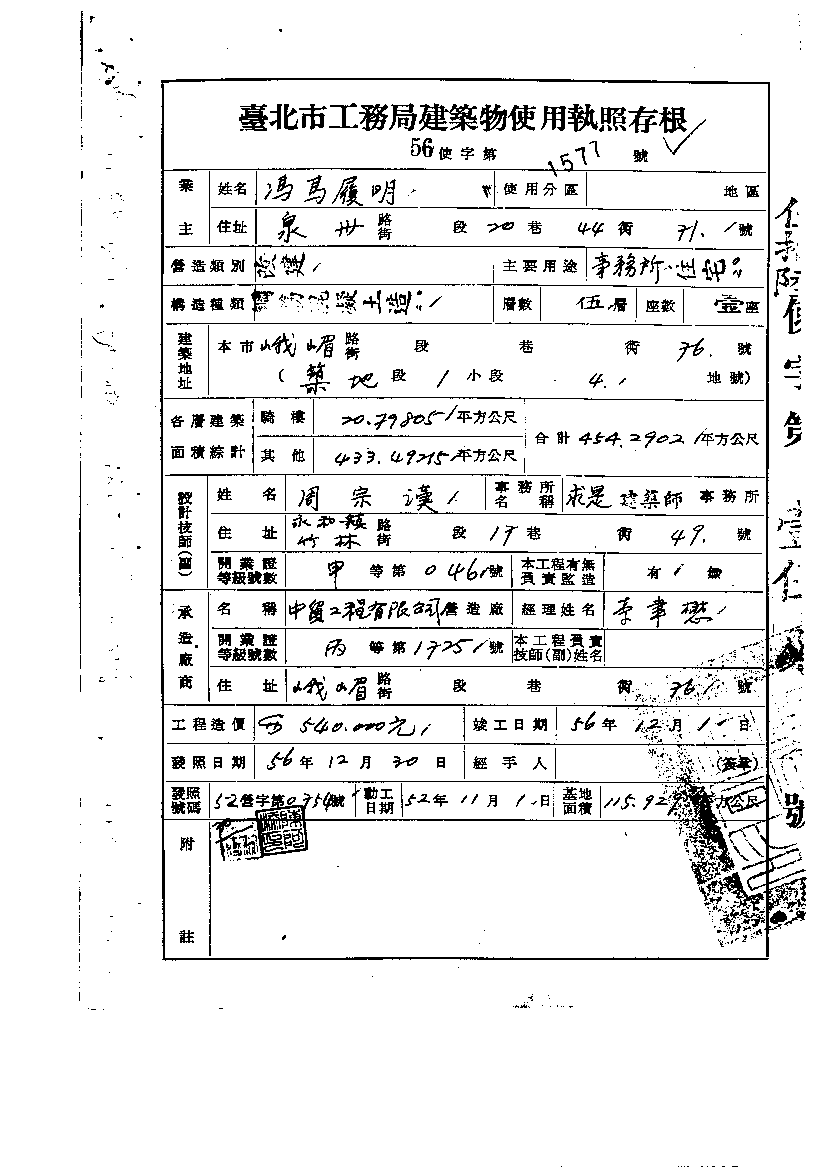 臺北市工務局建築物使用執照存根
56使字第1577號
業主 姓名 馮馬履明 使用分區 地區
住址 泉州 路街 段 20 巷 44 衖 71. 號
營造類別 改建 主要用途 事務所.住宅
構造種類 鋼筋混凝土造 層數 伍層 座數 壹座
建築地址 本市 峨嵋 路街 段 巷 衖 76. 號
(築地段 1 小段 4. 地號)
各層建築面積綜計 騎樓 20.79805平方公尺 合計 454.2902平方公尺
其他 433.49215平方公尺
設計技師(副) 姓名 周宗漢 事務所名稱 求是建築師事務所
住址 永和鎮竹林 路街 段 17巷 衖 49. 號
開業證等級號數 甲等第0461號 本工程有無負責監造 有 無
承造廠商 名稱 中貿工程有限公司營造廠 經理姓名 李肇懋
開業證等級號數 丙等第1725號 本工程負責技師(副)姓名
住址 峨嵋 路街 段 巷 衖 76 號
工程造價 540.000元 竣工日期 56年12月1日
發照日期 56年12月30日 經手人 (簽章)
發照號碼 52營字第0754號 動工日期 52年11月1日 基地面積 115.929平方公尺
附註
使字第
壹仟
號